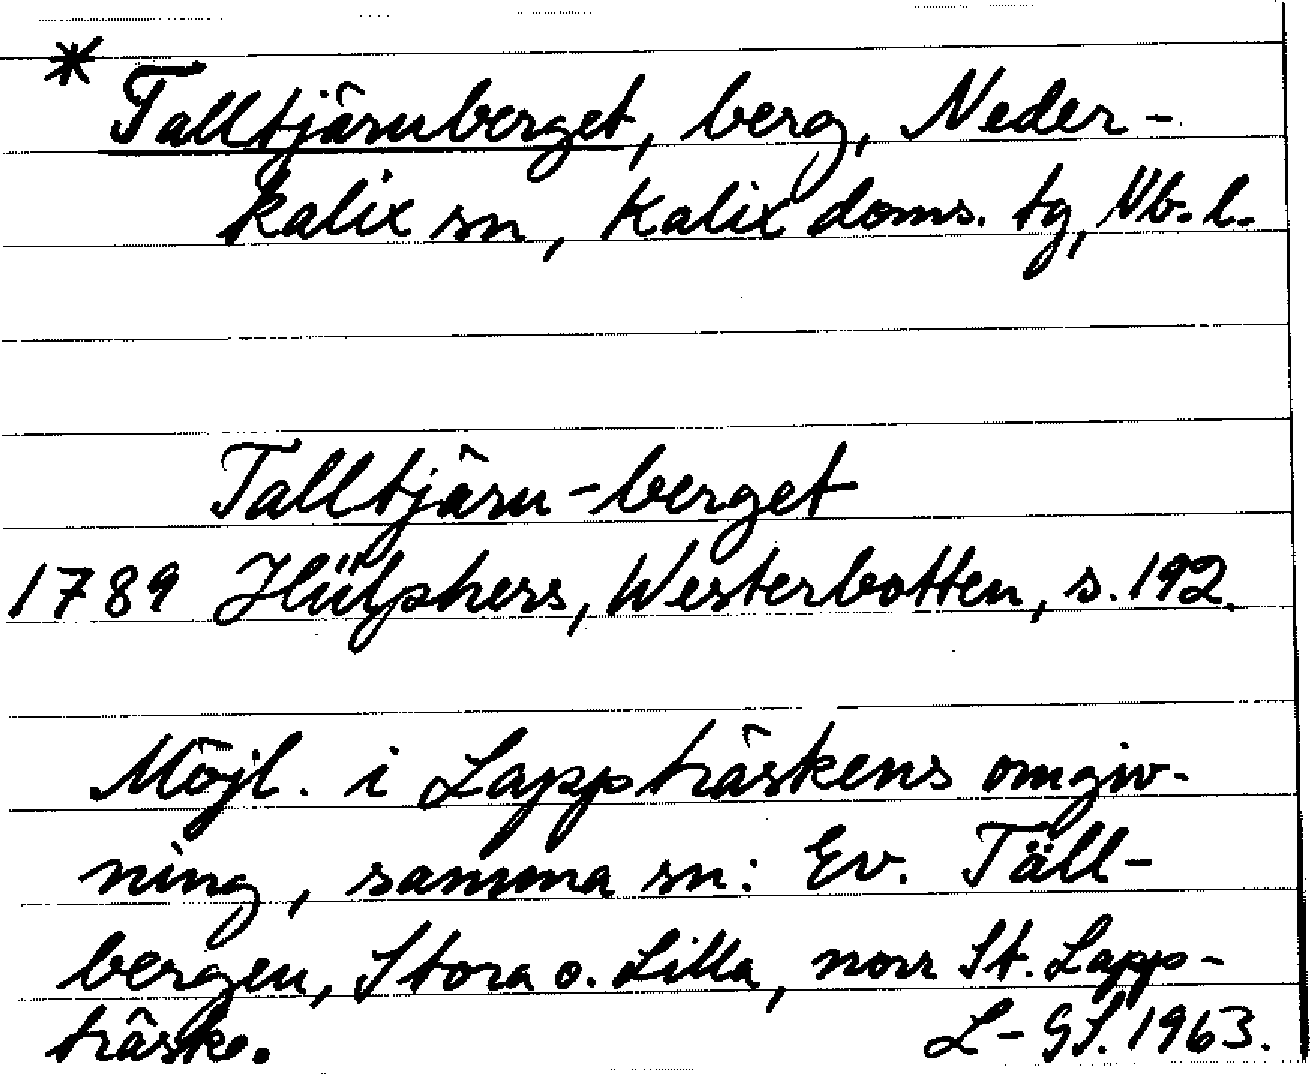 * Talltjärnberget, berg, Neder-
kalix sn, Kalix doms. tg, Nb. l.
Talltjärn-berget
1789 Hülphers, Westerbotten, s. 192.
Möjl. i Lappträskens omgiv-
ning, samma sn: Ev. Täll-
bergen, Stora o. Lilla, norr St. Lapp-
träsk.
L-GS. 1963.